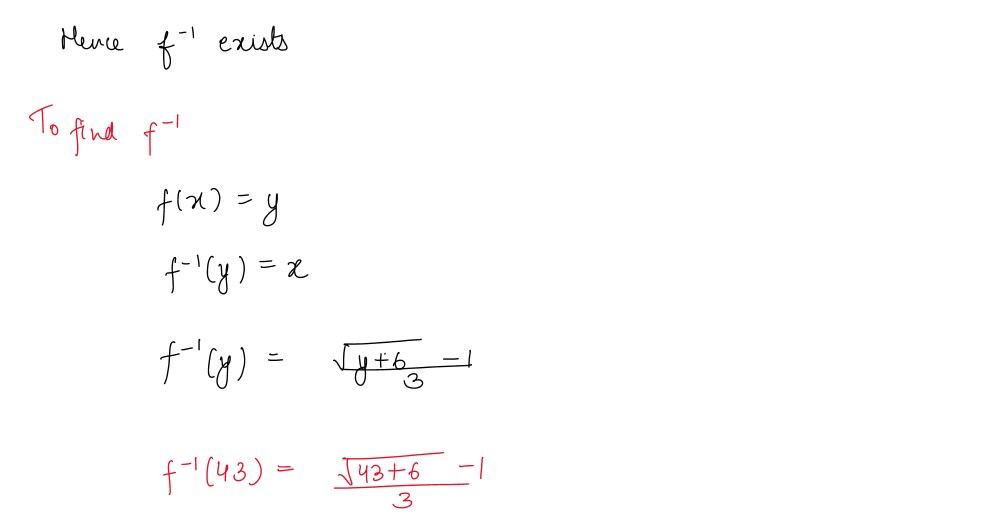 Hence f⁻¹ exists
To find f⁻¹
f(x) = y
f⁻¹(y) = x
f⁻¹(y) = (√(y+6) - 1)/3
f⁻¹(43) = (√(43+6) - 1)/3